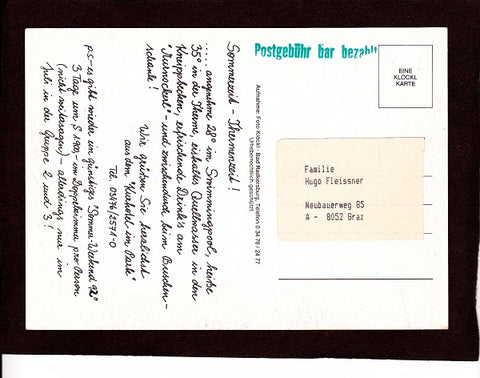 Sommerzeit - Thermenzeit!
..... angenehme 28° im Swimmingpool, heiße
35° in der Therme, eiskaltes Quellwasser in den
Kneippbecken, erfrischende Drink's am
"Murnockerl" - und zwischendurch beim Buschen-
schank!
Wir grüßen Sie herzlichst
aus dem "Kurhotel im Park"
Tel. 03476/2571-0
ps- es gibt wieder ein günstiges "Somma-Weekend 92"
3 Tage um S 1.900.- im Doppelzimma pro Person
(nicht weitersagen) - allerdings nur im
Juli in der Gruppe 2 und 3!
Aufnahme: Foto Klöckl · Bad Radkersburg, Telefon 0 34 76 / 24 77
Urheberrechtlich geschützt!
Postgebühr bar bezahlt
EINE
KLÖCKL
KARTE
Familie
Hugo Fleissner
Neubauerweg 85
A - 8052 Graz